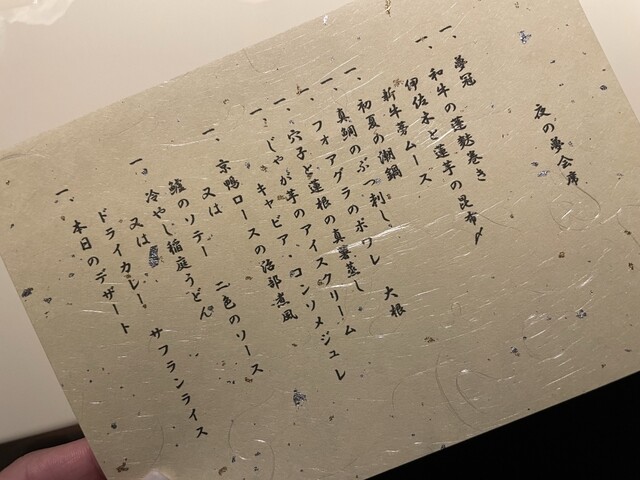 夜の夢会席
一、夢冠
和牛の蓮麩巻き
一、伊佐木と蓮芋の昆布〆
新牛蒡ムース
一、初夏の潮鍋
一、真鯛のぶつ刺し
一、フォアグラのポワレ 大根
一、穴子と蓮根の真薯蒸し
一、じゃが芋のアイスクリーム
キャビア・コンソメジュレ
一、京鴨ロースの治部煮風
又は
鱸のソテー 二色のソース
一、冷やし稲庭うどん
又は
ドライカレー サフランライス
一、本日のデザート